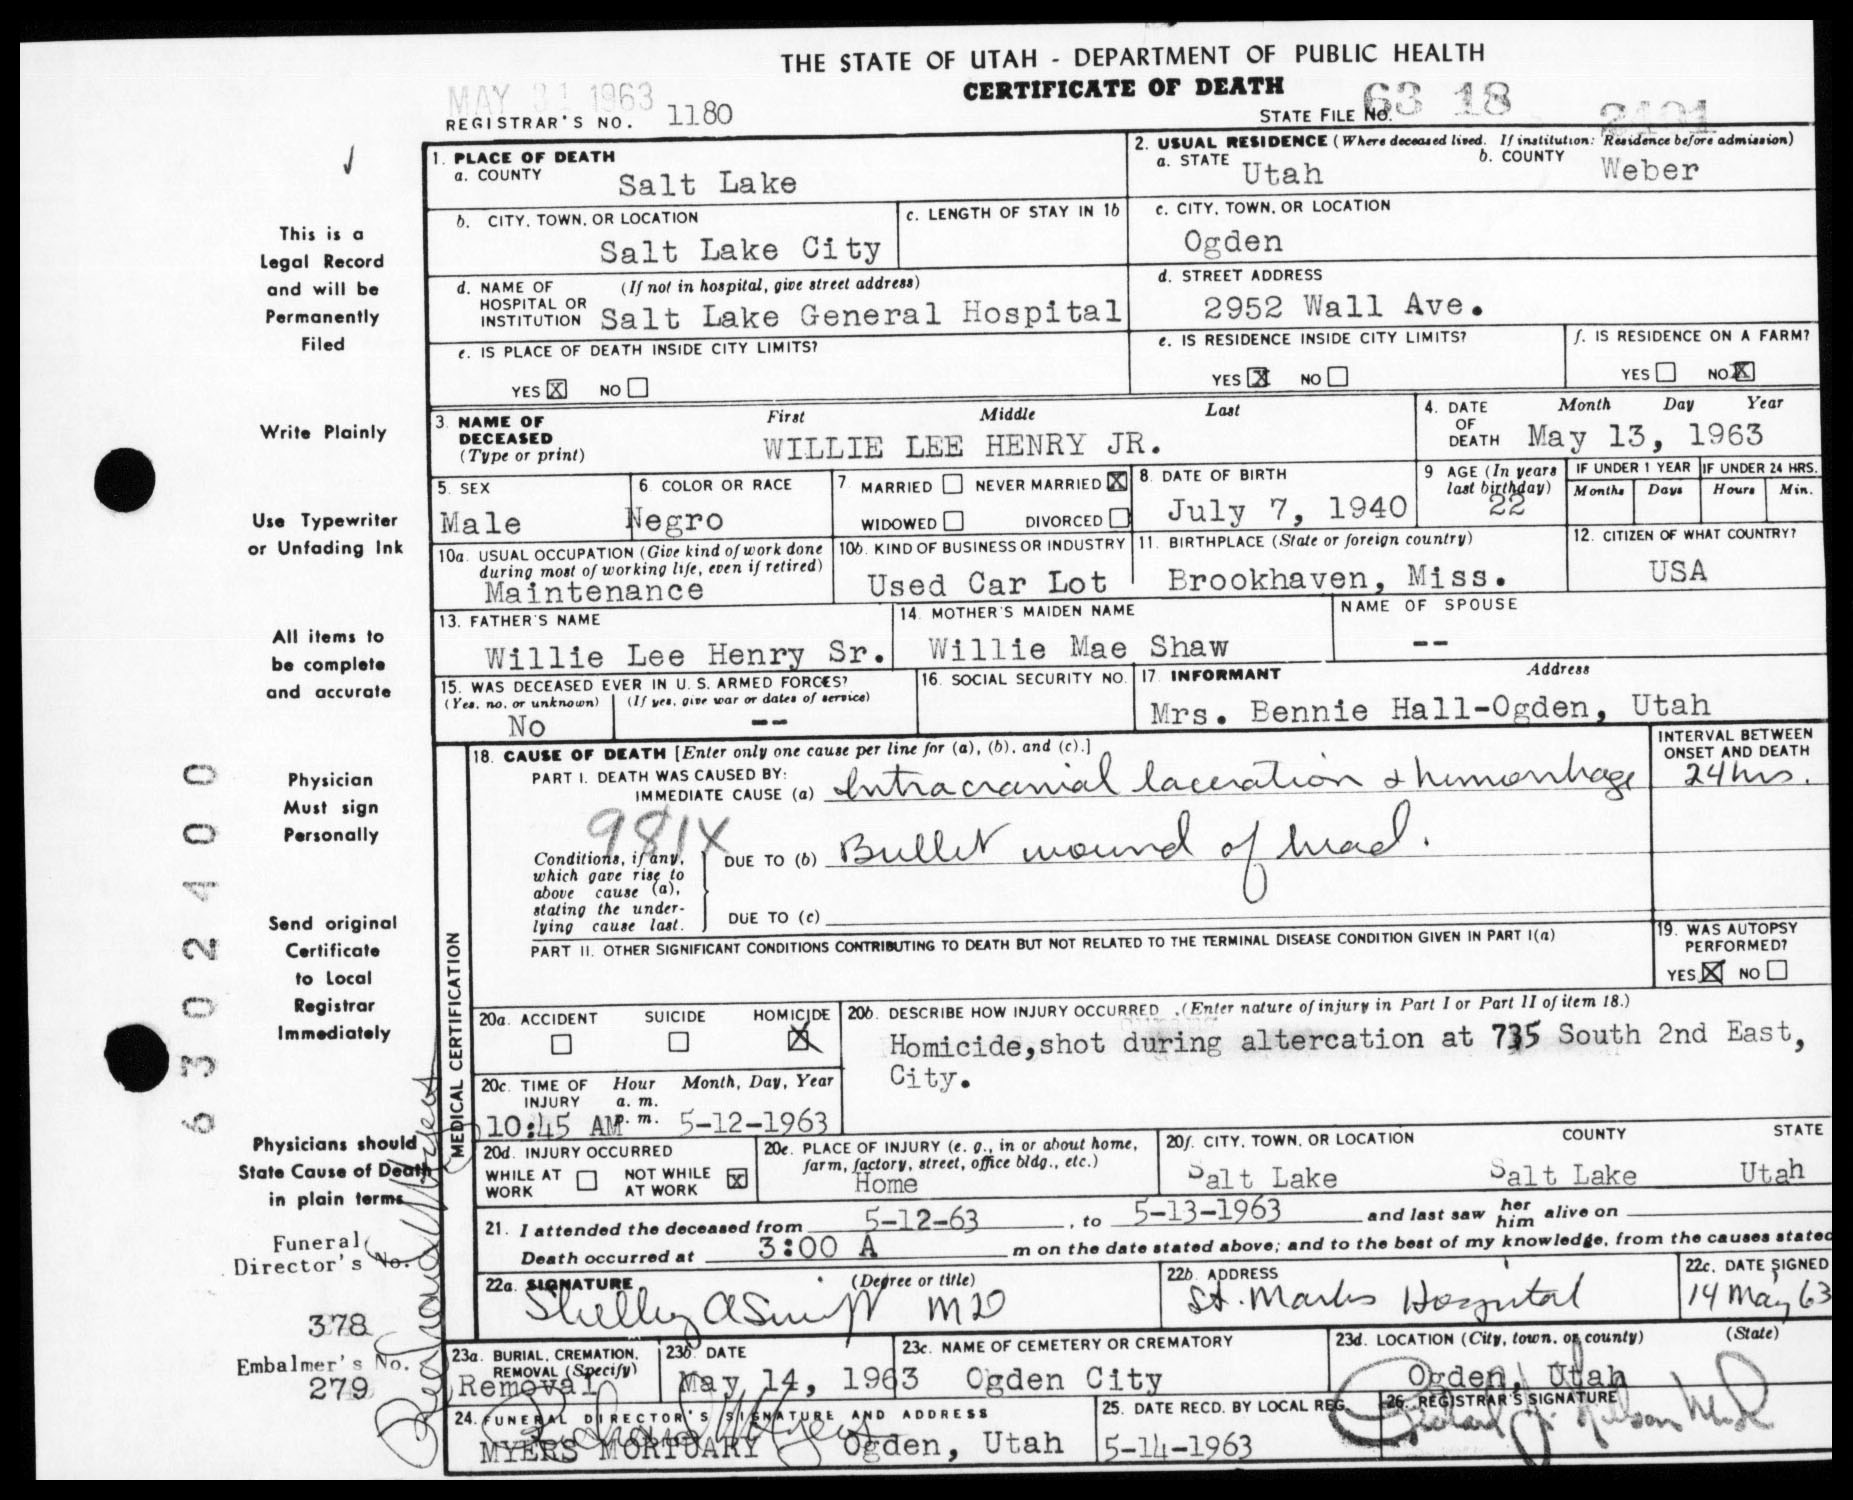 THE STATE OF UTAH - DEPARTMENT OF PUBLIC HEALTH
CERTIFICATE OF DEATH
MAY 31 1963
REGISTRAR'S NO. 1180
STATE FILE NO. 63 18 2401
1. PLACE OF DEATH
a. COUNTY Salt Lake
2. USUAL RESIDENCE (Where deceased lived. If institution: Residence before admission)
a. STATE Utah b. COUNTY Weber
b. CITY, TOWN, OR LOCATION Salt Lake City
c. LENGTH OF STAY IN 1b
c. CITY, TOWN, OR LOCATION
Ogden
d. NAME OF HOSPITAL OR INSTITUTION (If not in hospital, give street address)
Salt Lake General Hospital
d. STREET ADDRESS
2952 Wall Ave.
e. IS PLACE OF DEATH INSIDE CITY LIMITS?
YES X NO
e. IS RESIDENCE INSIDE CITY LIMITS?
YES X NO
f. IS RESIDENCE ON A FARM?
YES NO X
3. NAME OF DECEASED (Type or print)
First Middle Last
WILLIE LEE HENRY JR.
4. DATE OF DEATH Month Day Year
May 13, 1963
5. SEX
Male
6. COLOR OR RACE
Negro
7. MARRIED NEVER MARRIED X
WIDOWED DIVORCED
8. DATE OF BIRTH
July 7, 1940
9 AGE (In years last birthday)
22
IF UNDER 1 YEAR
Months Days
IF UNDER 24 HRS.
Hours Min.
10a. USUAL OCCUPATION (Give kind of work done during most of working life, even if retired)
Maintenance
10b. KIND OF BUSINESS OR INDUSTRY
Used Car Lot
11. BIRTHPLACE (State or foreign country)
Brookhaven, Miss.
12. CITIZEN OF WHAT COUNTRY?
USA
13. FATHER'S NAME
Willie Lee Henry Sr.
14. MOTHER'S MAIDEN NAME
Willie Mae Shaw
NAME OF SPOUSE
--
15. WAS DECEASED EVER IN U. S. ARMED FORCES?
(Yes, no, or unknown) (If yes, give war or dates of service)
No --
16. SOCIAL SECURITY NO.
17. INFORMANT Address
Mrs. Bennie Hall-Ogden, Utah
MEDICAL CERTIFICATION
18. CAUSE OF DEATH [Enter only one cause per line for (a), (b), and (c).]
PART I. DEATH WAS CAUSED BY:
IMMEDIATE CAUSE (a) Intracranial laceration & hemorrhage
INTERVAL BETWEEN ONSET AND DEATH
24 hrs.
981X
Conditions, if any, which gave rise to above cause (a), stating the under-lying cause last.
DUE TO (b) Bullet wound of head.
DUE TO (c)
PART II. OTHER SIGNIFICANT CONDITIONS CONTRIBUTING TO DEATH BUT NOT RELATED TO THE TERMINAL DISEASE CONDITION GIVEN IN PART I(a)
19. WAS AUTOPSY PERFORMED?
YES X NO
20a. ACCIDENT SUICIDE HOMICIDE X
20b. DESCRIBE HOW INJURY OCCURRED .(Enter nature of injury in Part I or Part II of item 18.)
Homicide,shot during altercation at 735 South 2nd East,
City.
20c. TIME OF INJURY Hour a. m. p. m. Month, Day, Year
10:45 AM 5-12-1963
20d. INJURY OCCURRED
WHILE AT WORK NOT WHILE AT WORK X
20e. PLACE OF INJURY (e. g., in or about home, farm, factory, street, office bldg., etc.)
Home
20f. CITY, TOWN, OR LOCATION COUNTY STATE
Salt Lake Salt Lake Utah
21. I attended the deceased from 5-12-63, to 5-13-1963 and last saw her him alive on
Death occurred at 3:00 A m on the date stated above; and to the best of my knowledge, from the causes stated
22a. SIGNATURE (Degree or title)
Shelley A Swift MD
22b. ADDRESS
St. Marks Hospital
22c. DATE SIGNED
14 May 63
23a. BURIAL, CREMATION, REMOVAL (Specify)
Removal
23b. DATE
May 14, 1963
23c. NAME OF CEMETERY OR CREMATORY
Ogden City
23d. LOCATION (City, town, or county) (State)
Ogden, Utah
24. FUNERAL DIRECTOR'S SIGNATURE AND ADDRESS
MYERS MORTUARY Ogden, Utah
25. DATE RECD. BY LOCAL REG.
5-14-1963
26. REGISTRAR'S SIGNATURE
This is a
Legal Record
and will be
Permanently
Filed
Write Plainly
Use Typewriter
or Unfading Ink
All items to
be complete
and accurate
Physician
Must sign
Personally
Send original
Certificate
to Local
Registrar
Immediately
Physicians should
State Cause of Death
in plain terms
Funeral
Director's No.
378
Embalmer's No.
279
6302400